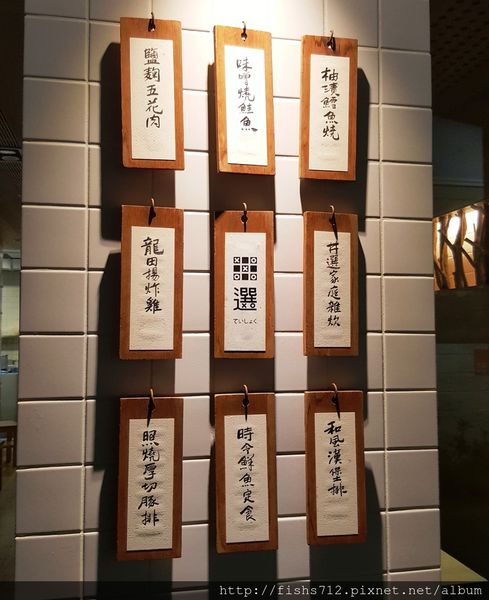 鹽麴五花肉
味噌燒鮭魚
柚漬鱈魚燒
龍田揚炸雞
選
ていしょく
井選家庭雜炊
照燒厚切豚排
時令鮮魚定食
和風漢堡排
http://fishs712.pixnet.net/album